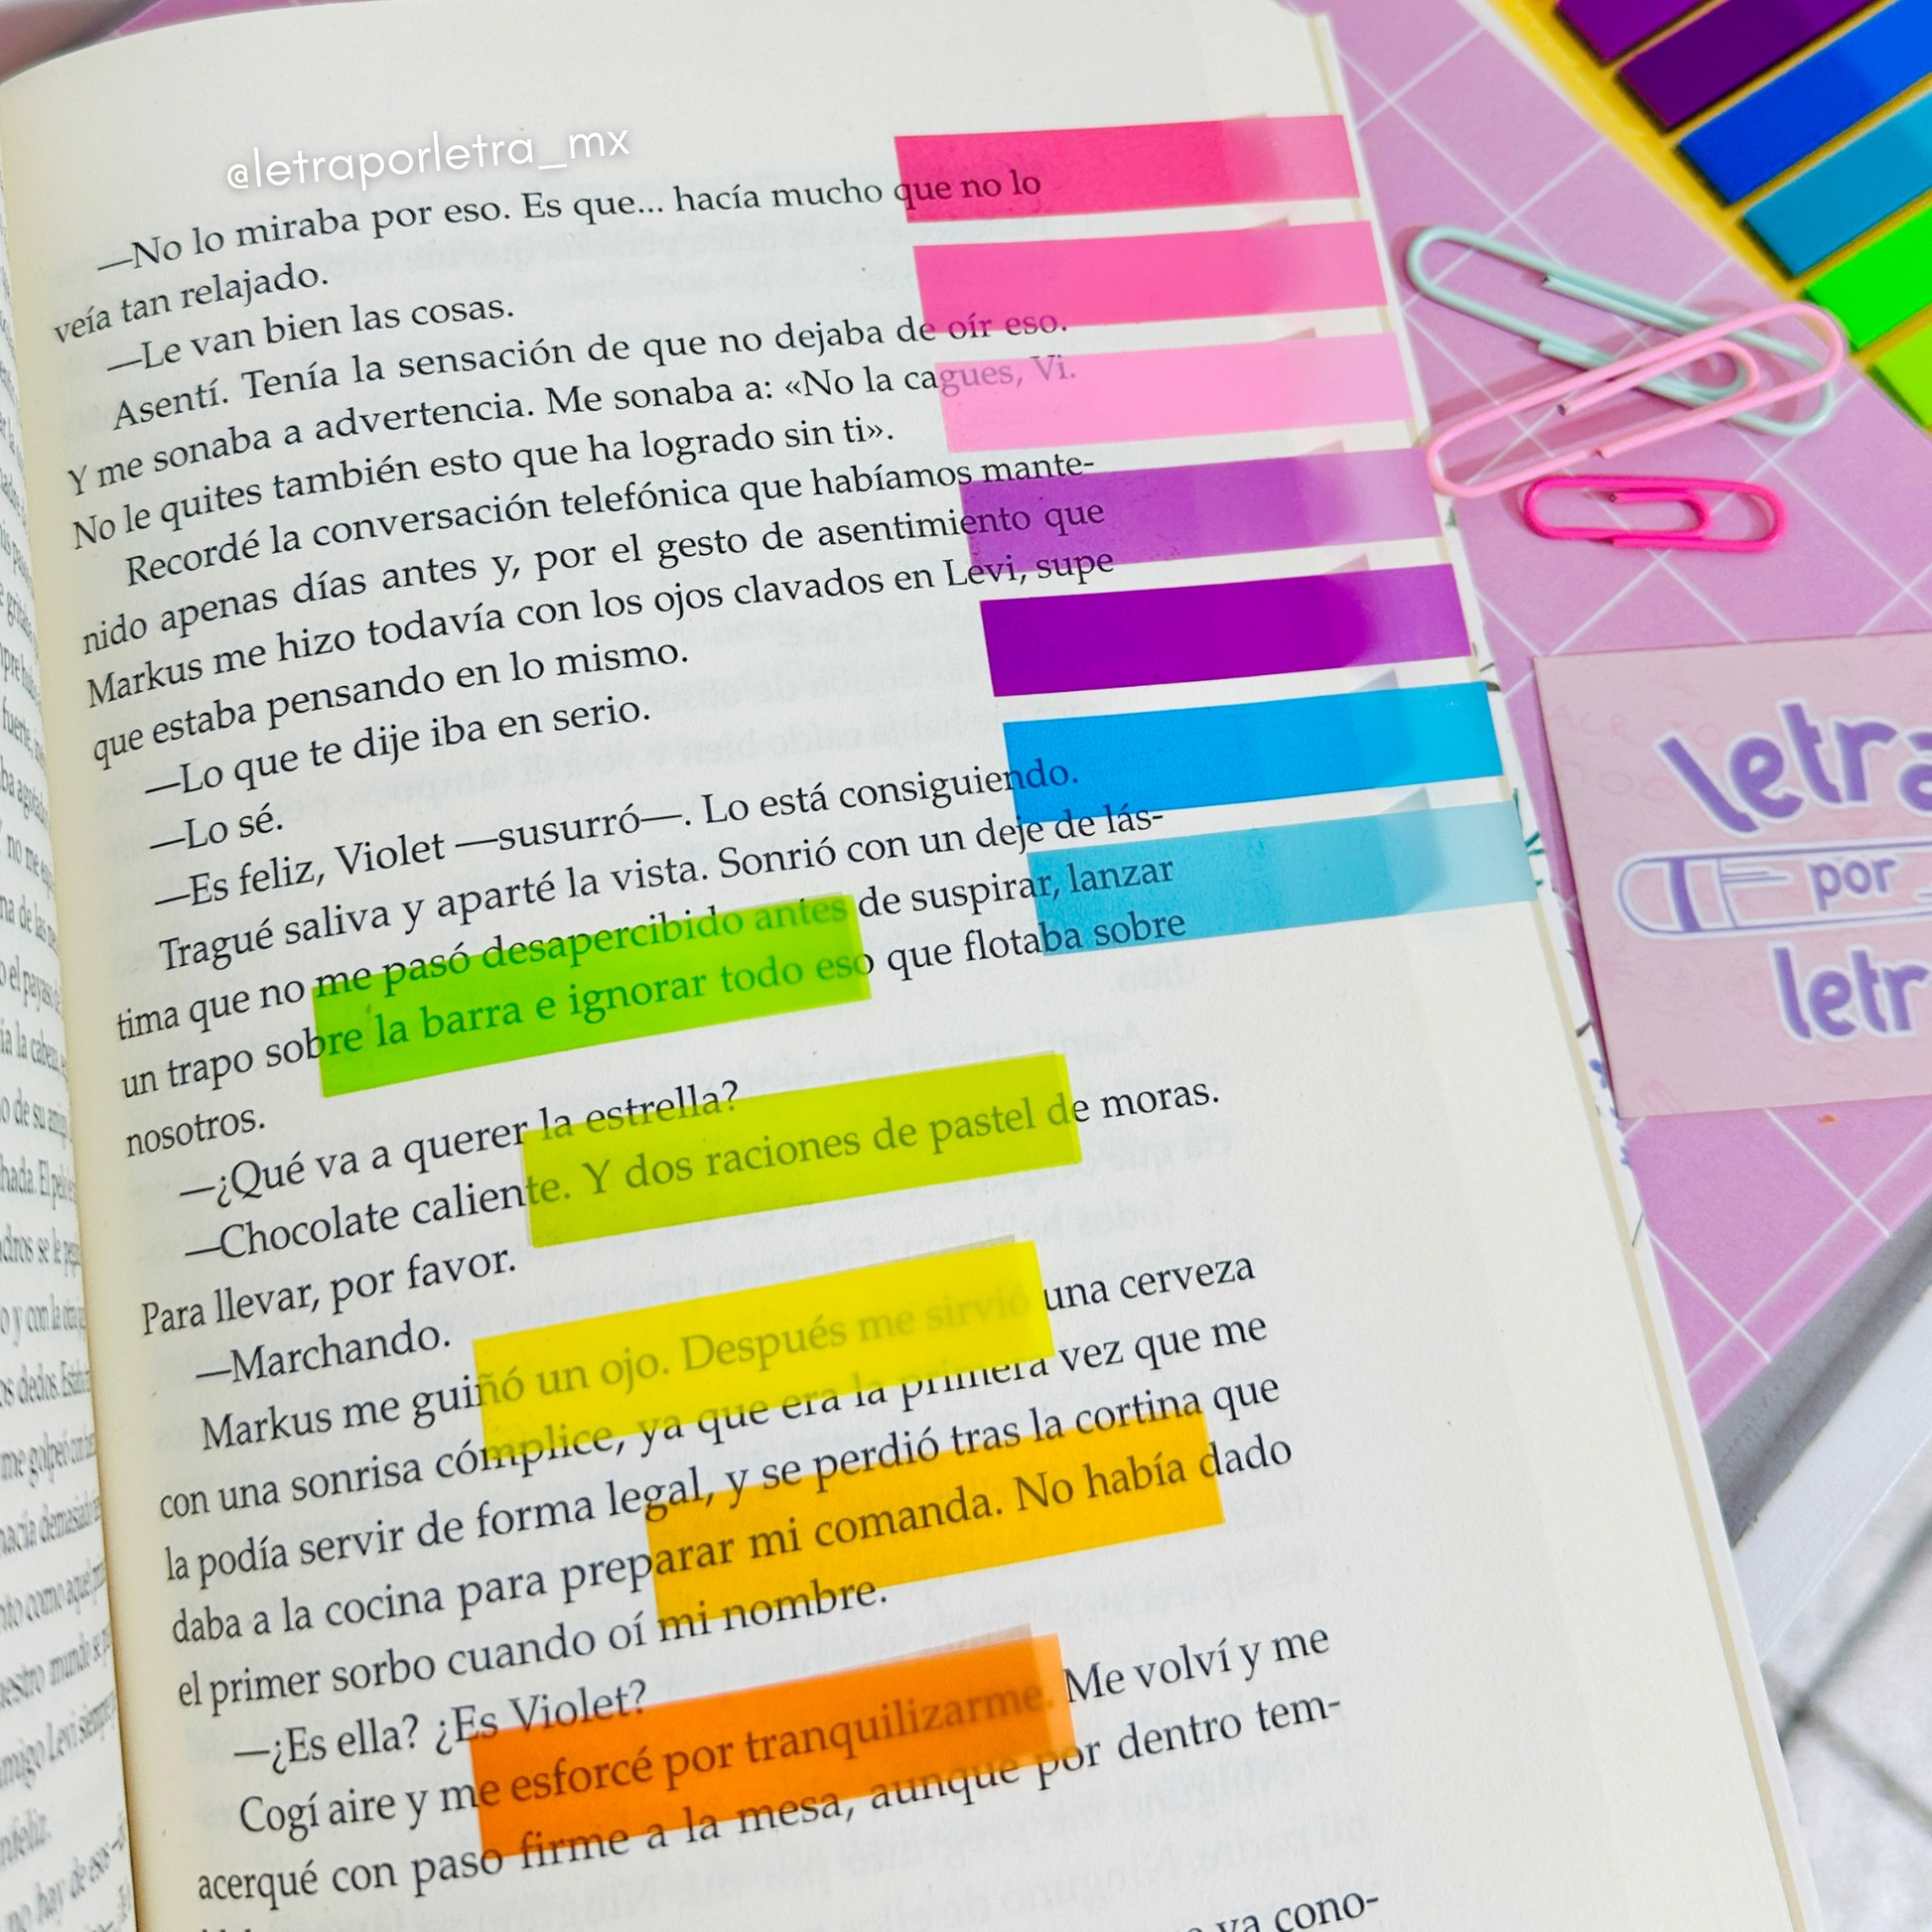 @letraporletra_mx
—No lo miraba por eso. Es que... hacía mucho que no lo
veía tan relajado.
—Le van bien las cosas.
Asentí. Tenía la sensación de que no dejaba de oír eso.
Y me sonaba a advertencia. Me sonaba a: «No la cagues, Vi.
No le quites también esto que ha logrado sin ti».
Recordé la conversación telefónica que habíamos mante-
nido apenas días antes y, por el gesto de asentimiento que
Markus me hizo todavía con los ojos clavados en Levi, supe
que estaba pensando en lo mismo.
—Lo que te dije iba en serio.
—Lo sé.
—Es feliz, Violet —susurró—. Lo está consiguiendo.
Tragué saliva y aparté la vista. Sonrió con un deje de lás-
tima que no me pasó desapercibido antes de suspirar, lanzar
un trapo sobre la barra e ignorar todo eso que flotaba sobre
nosotros.
—¿Qué va a querer la estrella?
—Chocolate caliente. Y dos raciones de pastel de moras.
Para llevar, por favor.
—Marchando.
Markus me guiñó un ojo. Después me sirvió una cerveza
con una sonrisa cómplice, ya que era la primera vez que me
la podía servir de forma legal, y se perdió tras la cortina que
daba a la cocina para preparar mi comanda. No había dado
el primer sorbo cuando oí mi nombre.
—¿Es ella? ¿Es Violet?
Cogí aire y me esforcé por tranquilizarme. Me volví y me
acerqué con paso firme a la mesa, aunque por dentro tem-
ya cono-
letra
por
letr